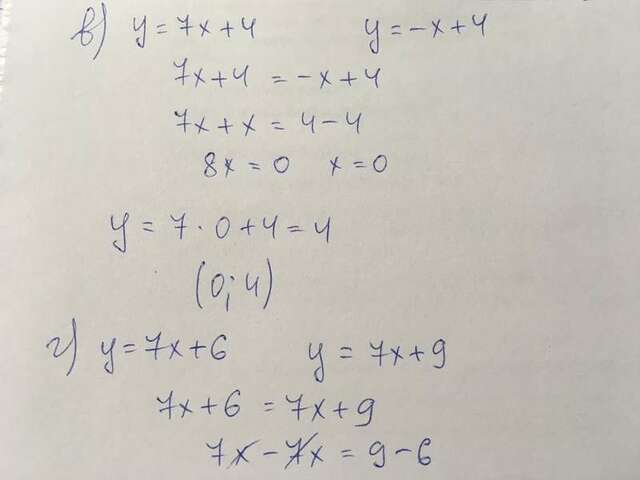 в) y = 7x + 4 y = -x + 4
7x + 4 = -x + 4
7x + x = 4 - 4
8x = 0 x = 0
y = 7 · 0 + 4 = 4
(0; 4)
г) y = 7x + 6 y = 7x + 9
7x + 6 = 7x + 9
7x - 7x = 9 - 6